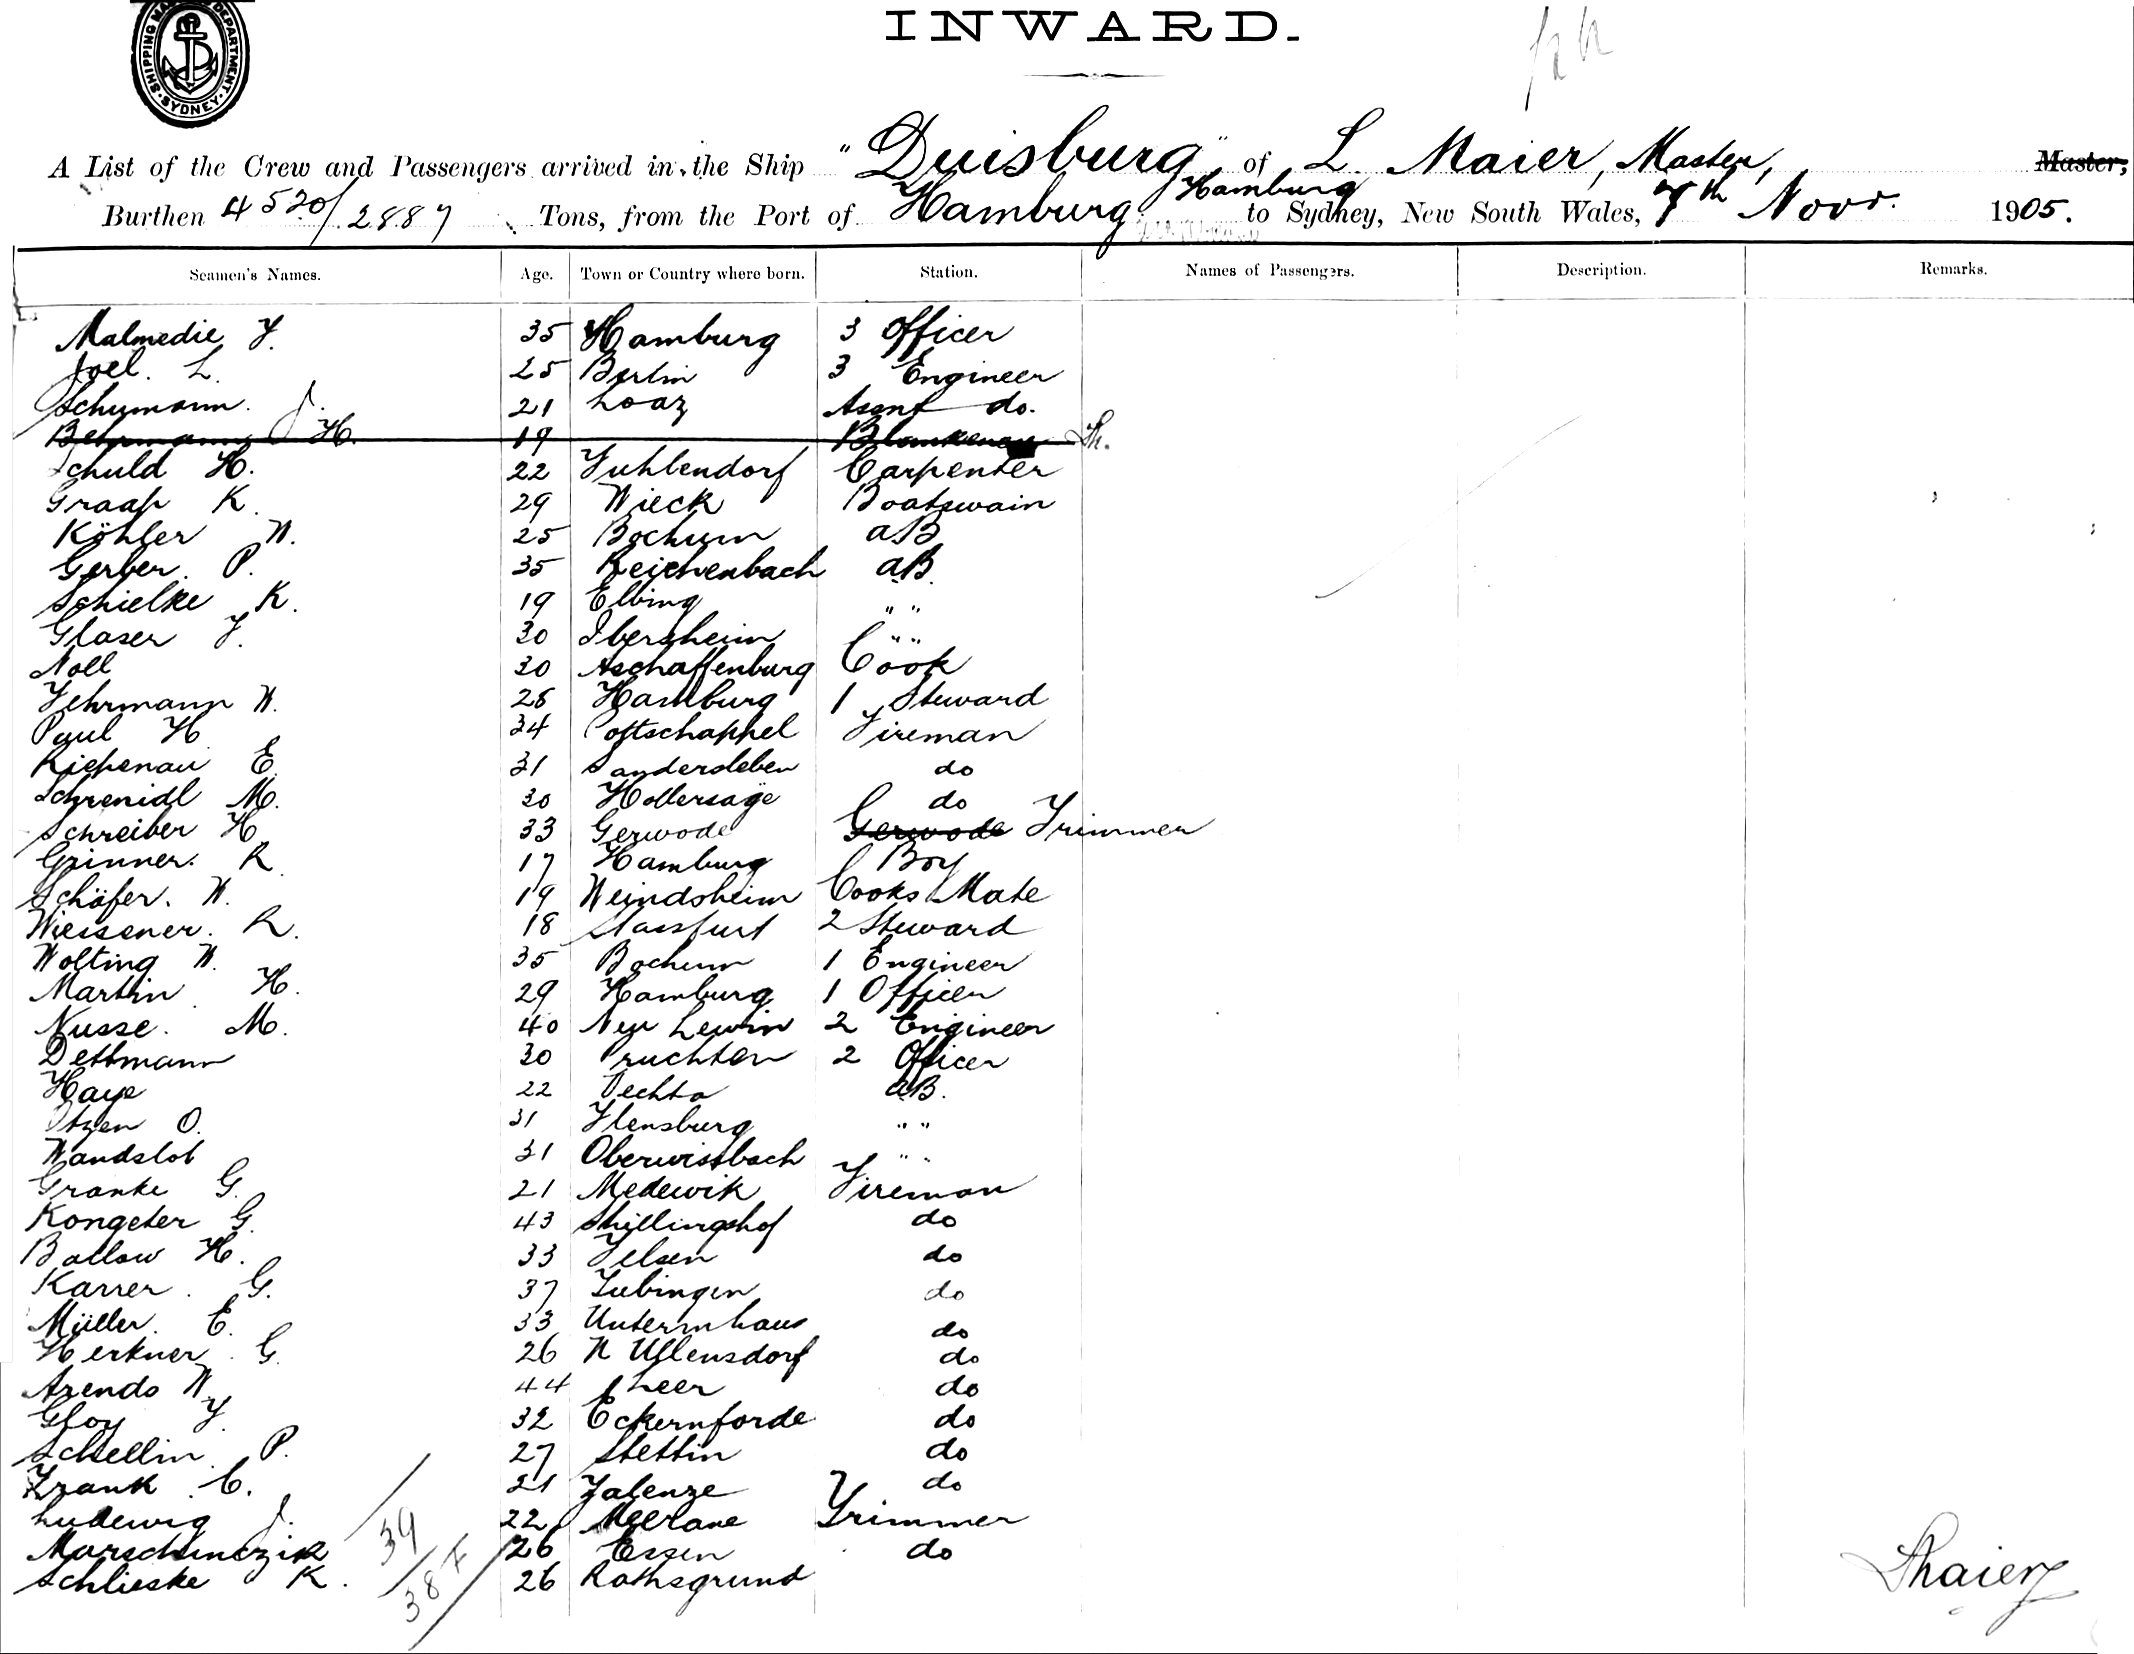 SHIPPING MA DEPARTMENT. SYDNEY.
INWARD.
A List of the Crew and Passengers arrived in the Ship "Duisburg" of L. Maier, Master, Master,
Hamburg
Burthen 4520/2887 Tons, from the Port of Hamburg to Sydney, New South Wales, 7th Novr. 1905.
Seamen's Names. Age. Town or Country where born. Station. Names of Passengers. Description. Remarks.
Malmedie F. 35 Hamburg 3 Officer
Joel. L. 25 Berlin 3 Engineer
Schumann. J. 21 Loaz Assnt do.
Behrmann H. 19 Blankenau
Schuld H. 22 Fuhlendorf Carpenter
Graap K. 29 Wieck Boatswain
Köhler W. 25 Bochum aB
Gerber. P. 35 Reichenbach aB.
Schielke K. 19 Elbing " "
Glaser F. 30 Ibersheim " "
Noll 30 Aschaffenburg Cook
Fehrmann W. 25 Hamburg 1 Steward
Paul H 34 Pottschappel Fireman
Riepenau E. 31 Sandersleben do
Schrenidl M. 30 Hollersage do
Schreiber H 33 Gerwode Gerwode Trimmer
Grinner. R 17 Hamburg Boy
Schäfer. W. 19 Weindsheim Cooks Mate
Wiessner. R. 18 Stassfurt 2 Steward
Wolting W. 35 Bochum 1 Engineer
Martin H. 29 Hamburg 1 Officer
Nusse. M. 40 New Lewin 2 Engineer
Dettmann 30 Pruchten 2 Officer
Haye 22 Vechta aB.
Otzen O. 31 Flensburg " "
Wandslob 31 Oberwissbach " "
Granke G. 21 Medewik Fireman
Kongeter G. 43 Shillingshof do
Ballow H. 33 Jelsen do
Karrer. G. 37 Tubingen do
Müller. E. 33 Untermhaus do
Herkner. G. 26 N Ullensdorf do
Arends W. 44 Leer do
Gloy F 32 Eckernforde do
Schellin P. 27 Stettin do
Frank C. 21 Zalenze do
Ludewig J. 22 Meerane Trimmer
Marschinczik 26 Essen do
Schlieske K. 26 Rothsgrund
39
38
LMaier